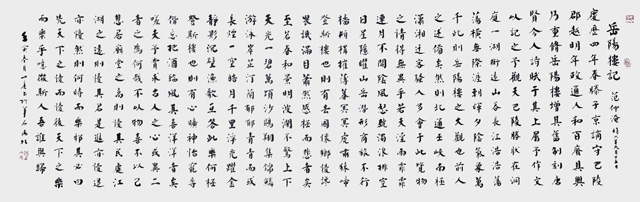 岳陽樓記 范仲淹
慶曆四年春滕子京謫守巴陵
郡越明年政通人和百廢具興
乃重修岳陽樓增其舊制刻唐
賢今人詩賦于其上屬予作文
以記之予觀夫巴陵勝狀在洞
庭一湖銜遠山吞長江浩浩湯
湯橫無際涯朝暉夕陰氣象萬
千此則岳陽樓之大觀也前人
之述備矣然則北通巫峽南極
瀟湘遷客騷人多會于此覽物
之情得無異乎若夫霪雨霏霏
連月不開陰風怒號濁浪排空
日星隱曜山岳潛形商旅不行
檣傾楫摧薄暮冥冥虎嘯猿啼
登斯樓也則有去國懷鄉憂讒
畏譏滿目蕭然感極而悲者矣
至若春和景明波瀾不驚上下
天光一碧萬頃沙鷗翔集錦鱗
游泳岸芷汀蘭郁郁青青而或
長煙一空皓月千里浮光躍金
靜影沉璧漁歌互答此樂何極
登斯樓也則有心曠神怡寵辱
偕忘把酒臨風其喜洋洋者矣
嗟夫予嘗求古仁人之心或異二
者之為何哉不以物喜不以己
悲居廟堂之高則憂其民處江
湖之遠則憂其君是進亦憂退
亦憂然則何時而樂耶其必曰
先天下之憂而憂後天下之樂
而樂乎噫微斯人吾誰與歸